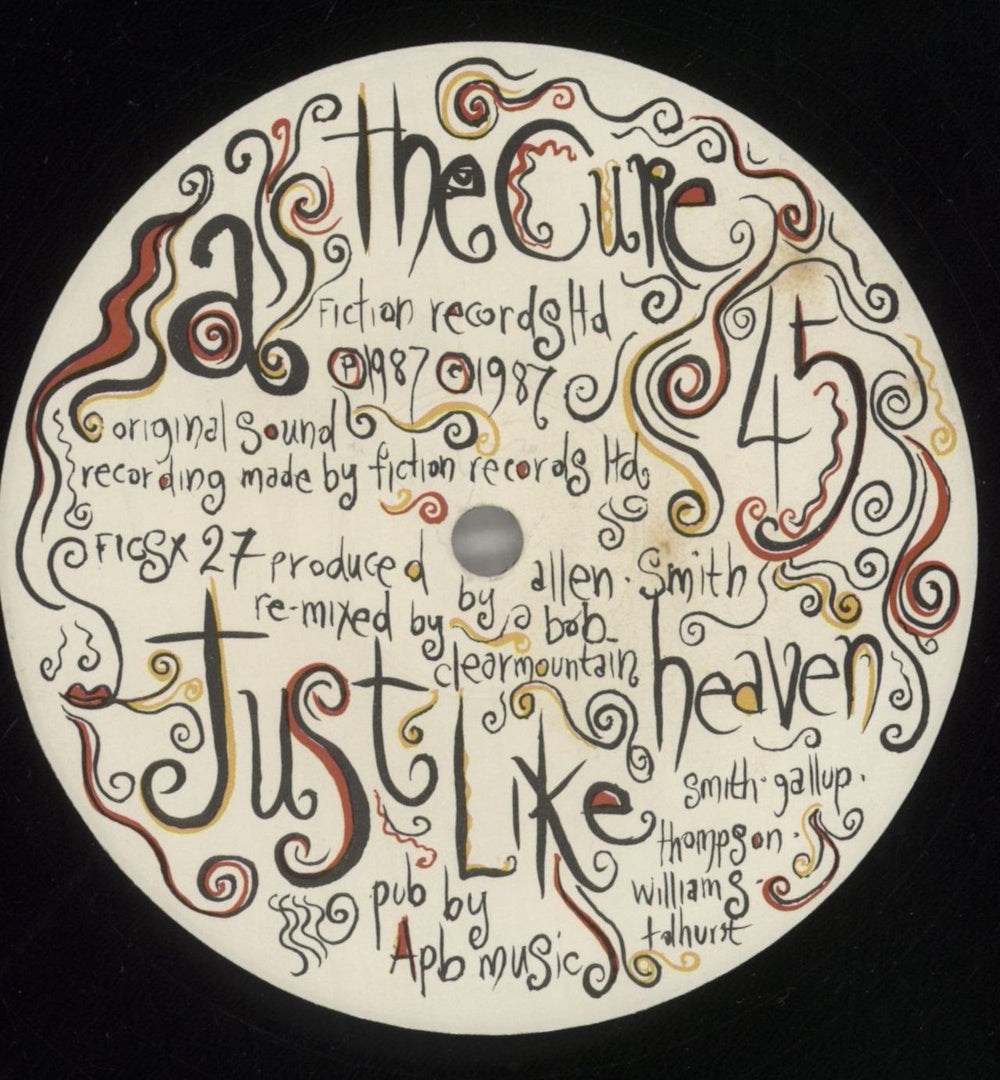 the Cure
a
Fiction records ltd
℗1987 ©1987
45
original sound
recording made by fiction records ltd.
FICSX 27 produced by allen · Smith
re-mixed by bob
clearmountain
Just Like heaven
smith · gallup ·
thompson ·
williams ·
tolhurst
pub by
Apb music